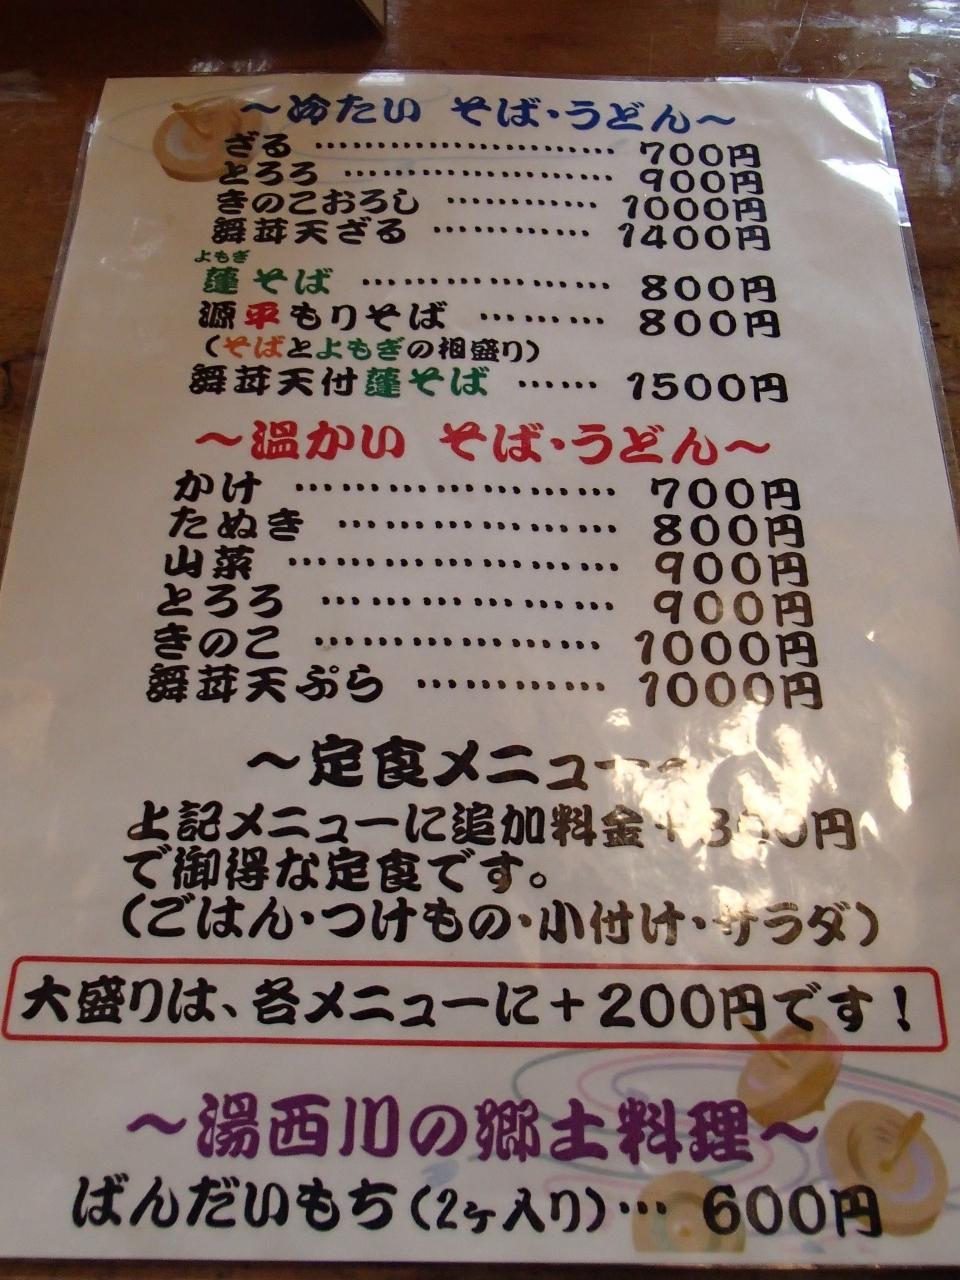 ～冷たい そば・うどん～
ざる ……………………… 700円
とろろ …………………… 900円
きのこおろし ………… 1000円
舞茸天ざる ………… 1400円
よもぎ
蓬そば ………………… 800円
源平もりそば ………… 800円
(そばとよもぎの相盛り)
舞茸天付蓬そば …… 1500円
～温かい そば・うどん～
かけ ……………………… 700円
たぬき …………………… 800円
山菜 ……………………… 900円
とろろ …………………… 900円
きのこ ………………… 1000円
舞茸天ぷら ………… 1000円
～定食メニュー～
上記メニューに追加料金+300円
で御得な定食です。
(ごはん・つけもの・小付け・サラダ)
大盛りは、各メニューに+200円です！
～湯西川の郷土料理～
ばんだいもち(2ヶ入り)… 600円